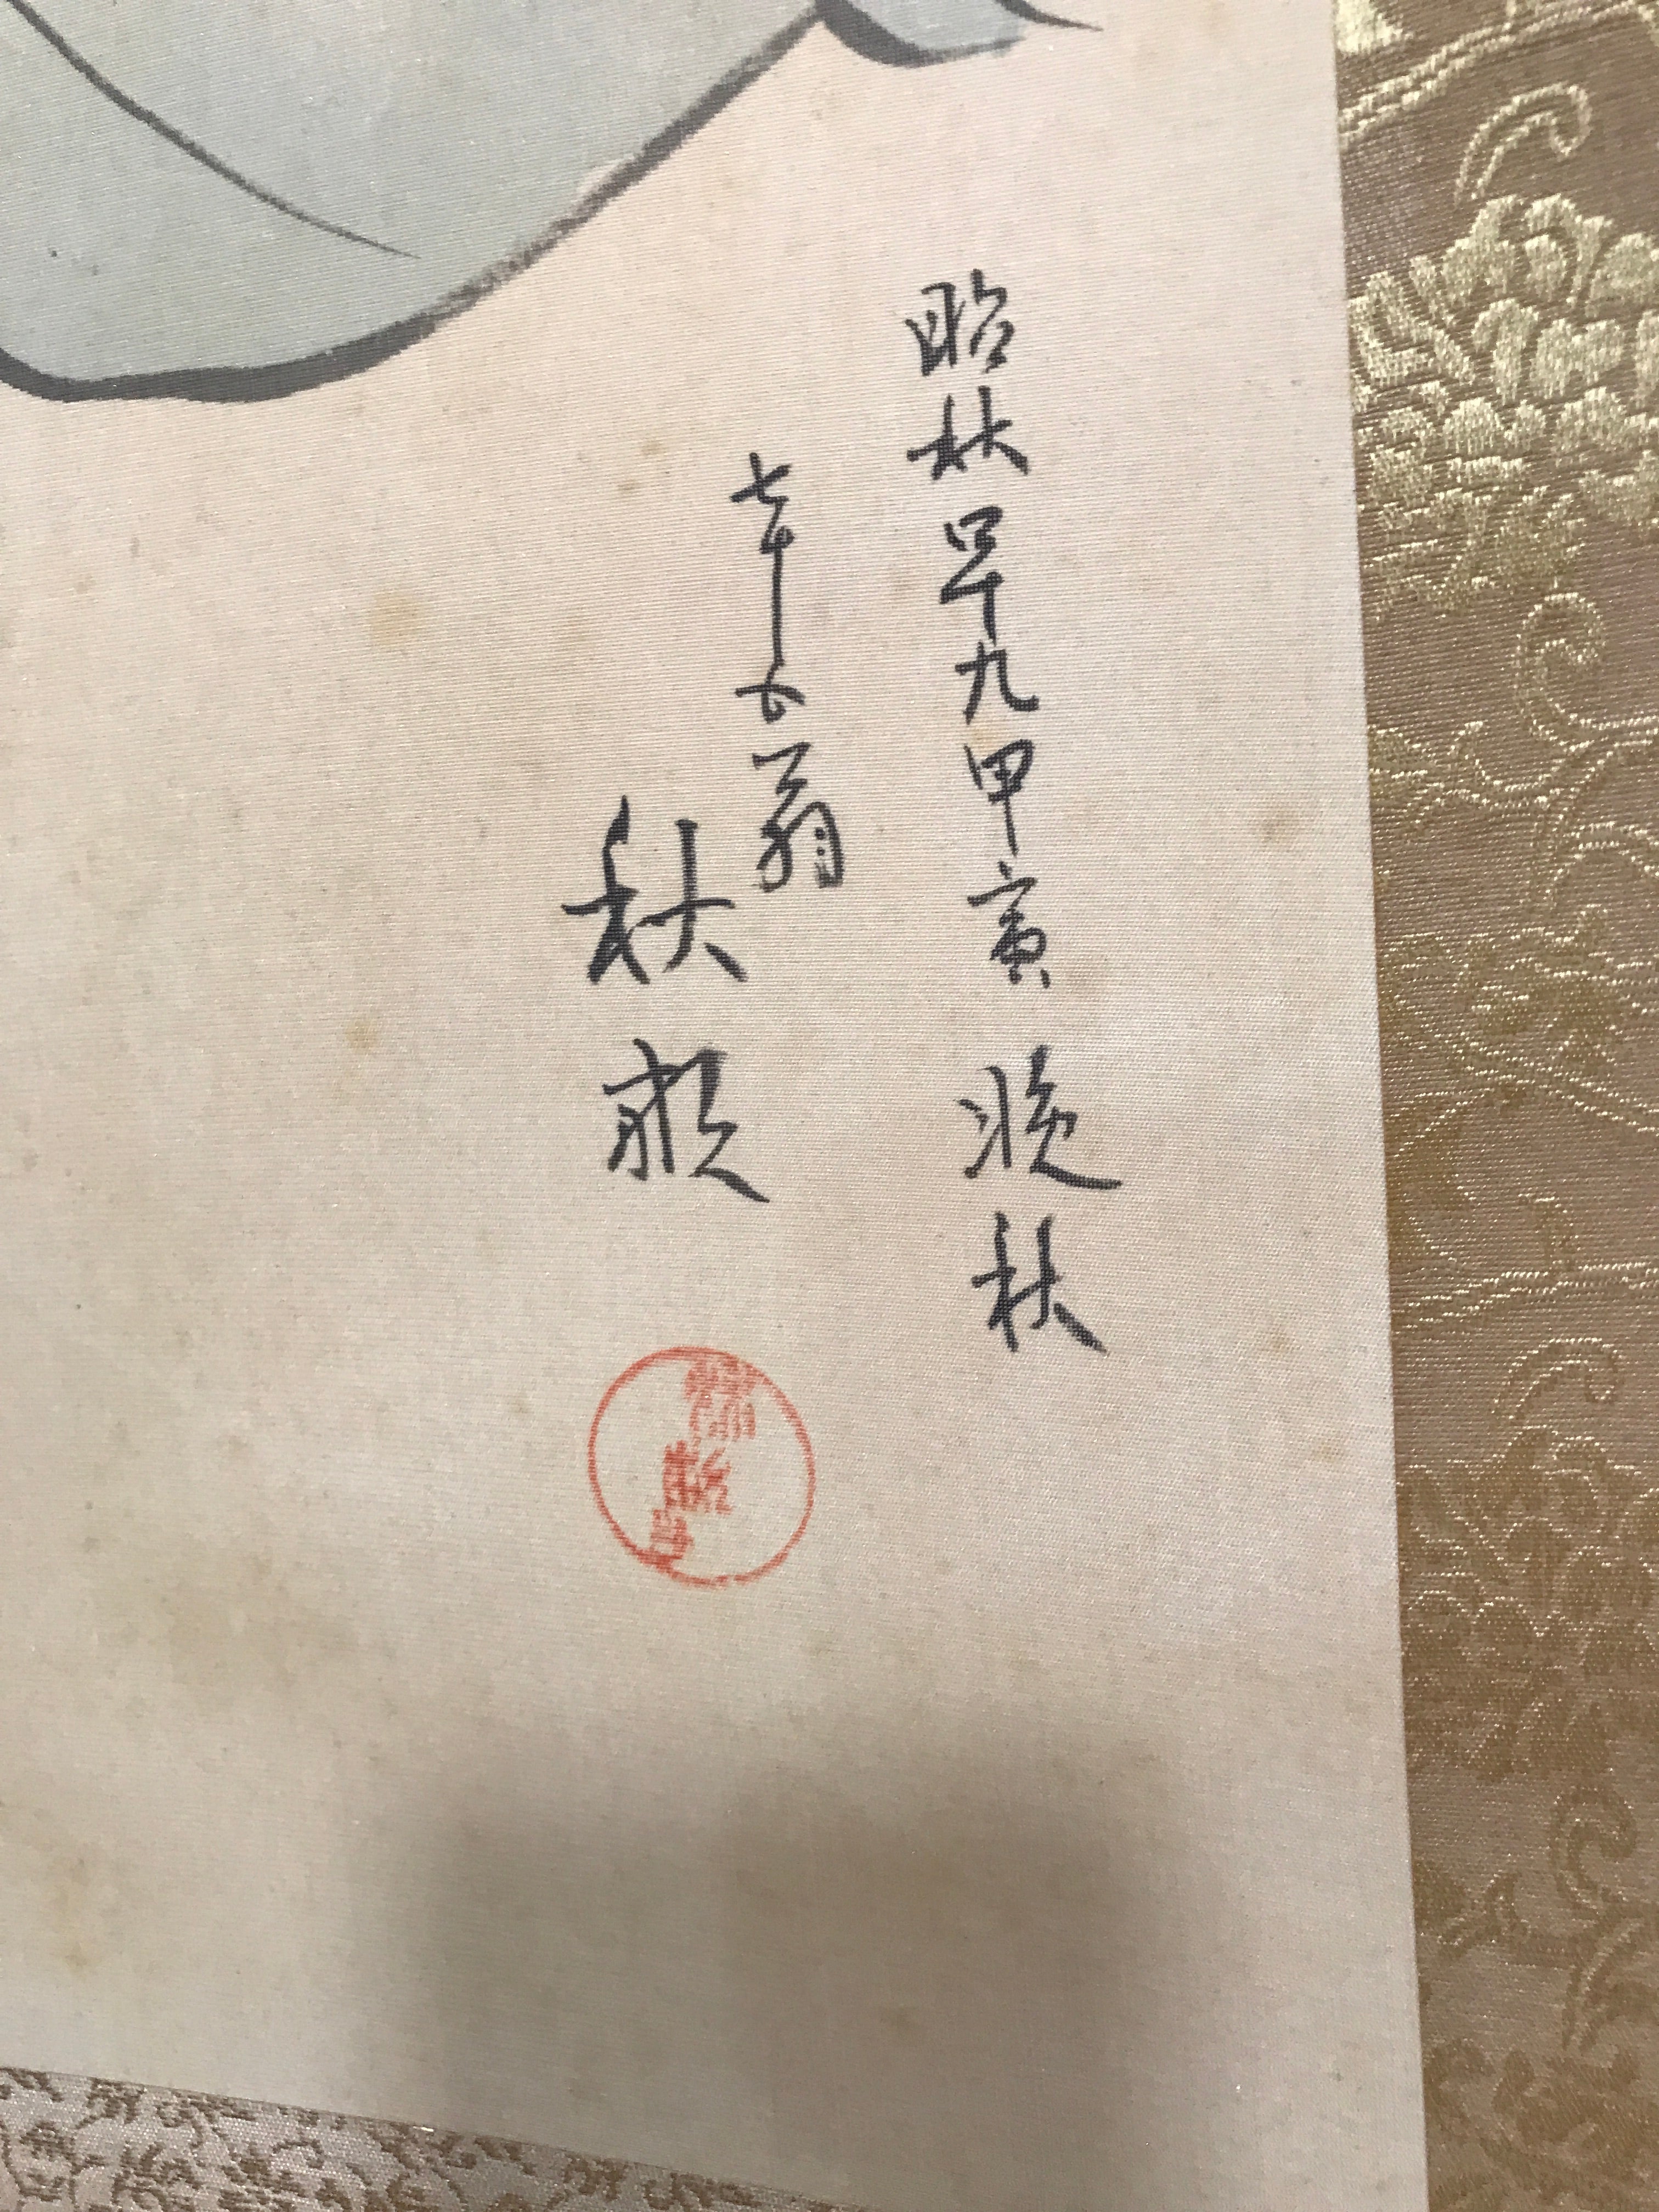 昭和四十九甲寅晩秋
七十五翁
秋